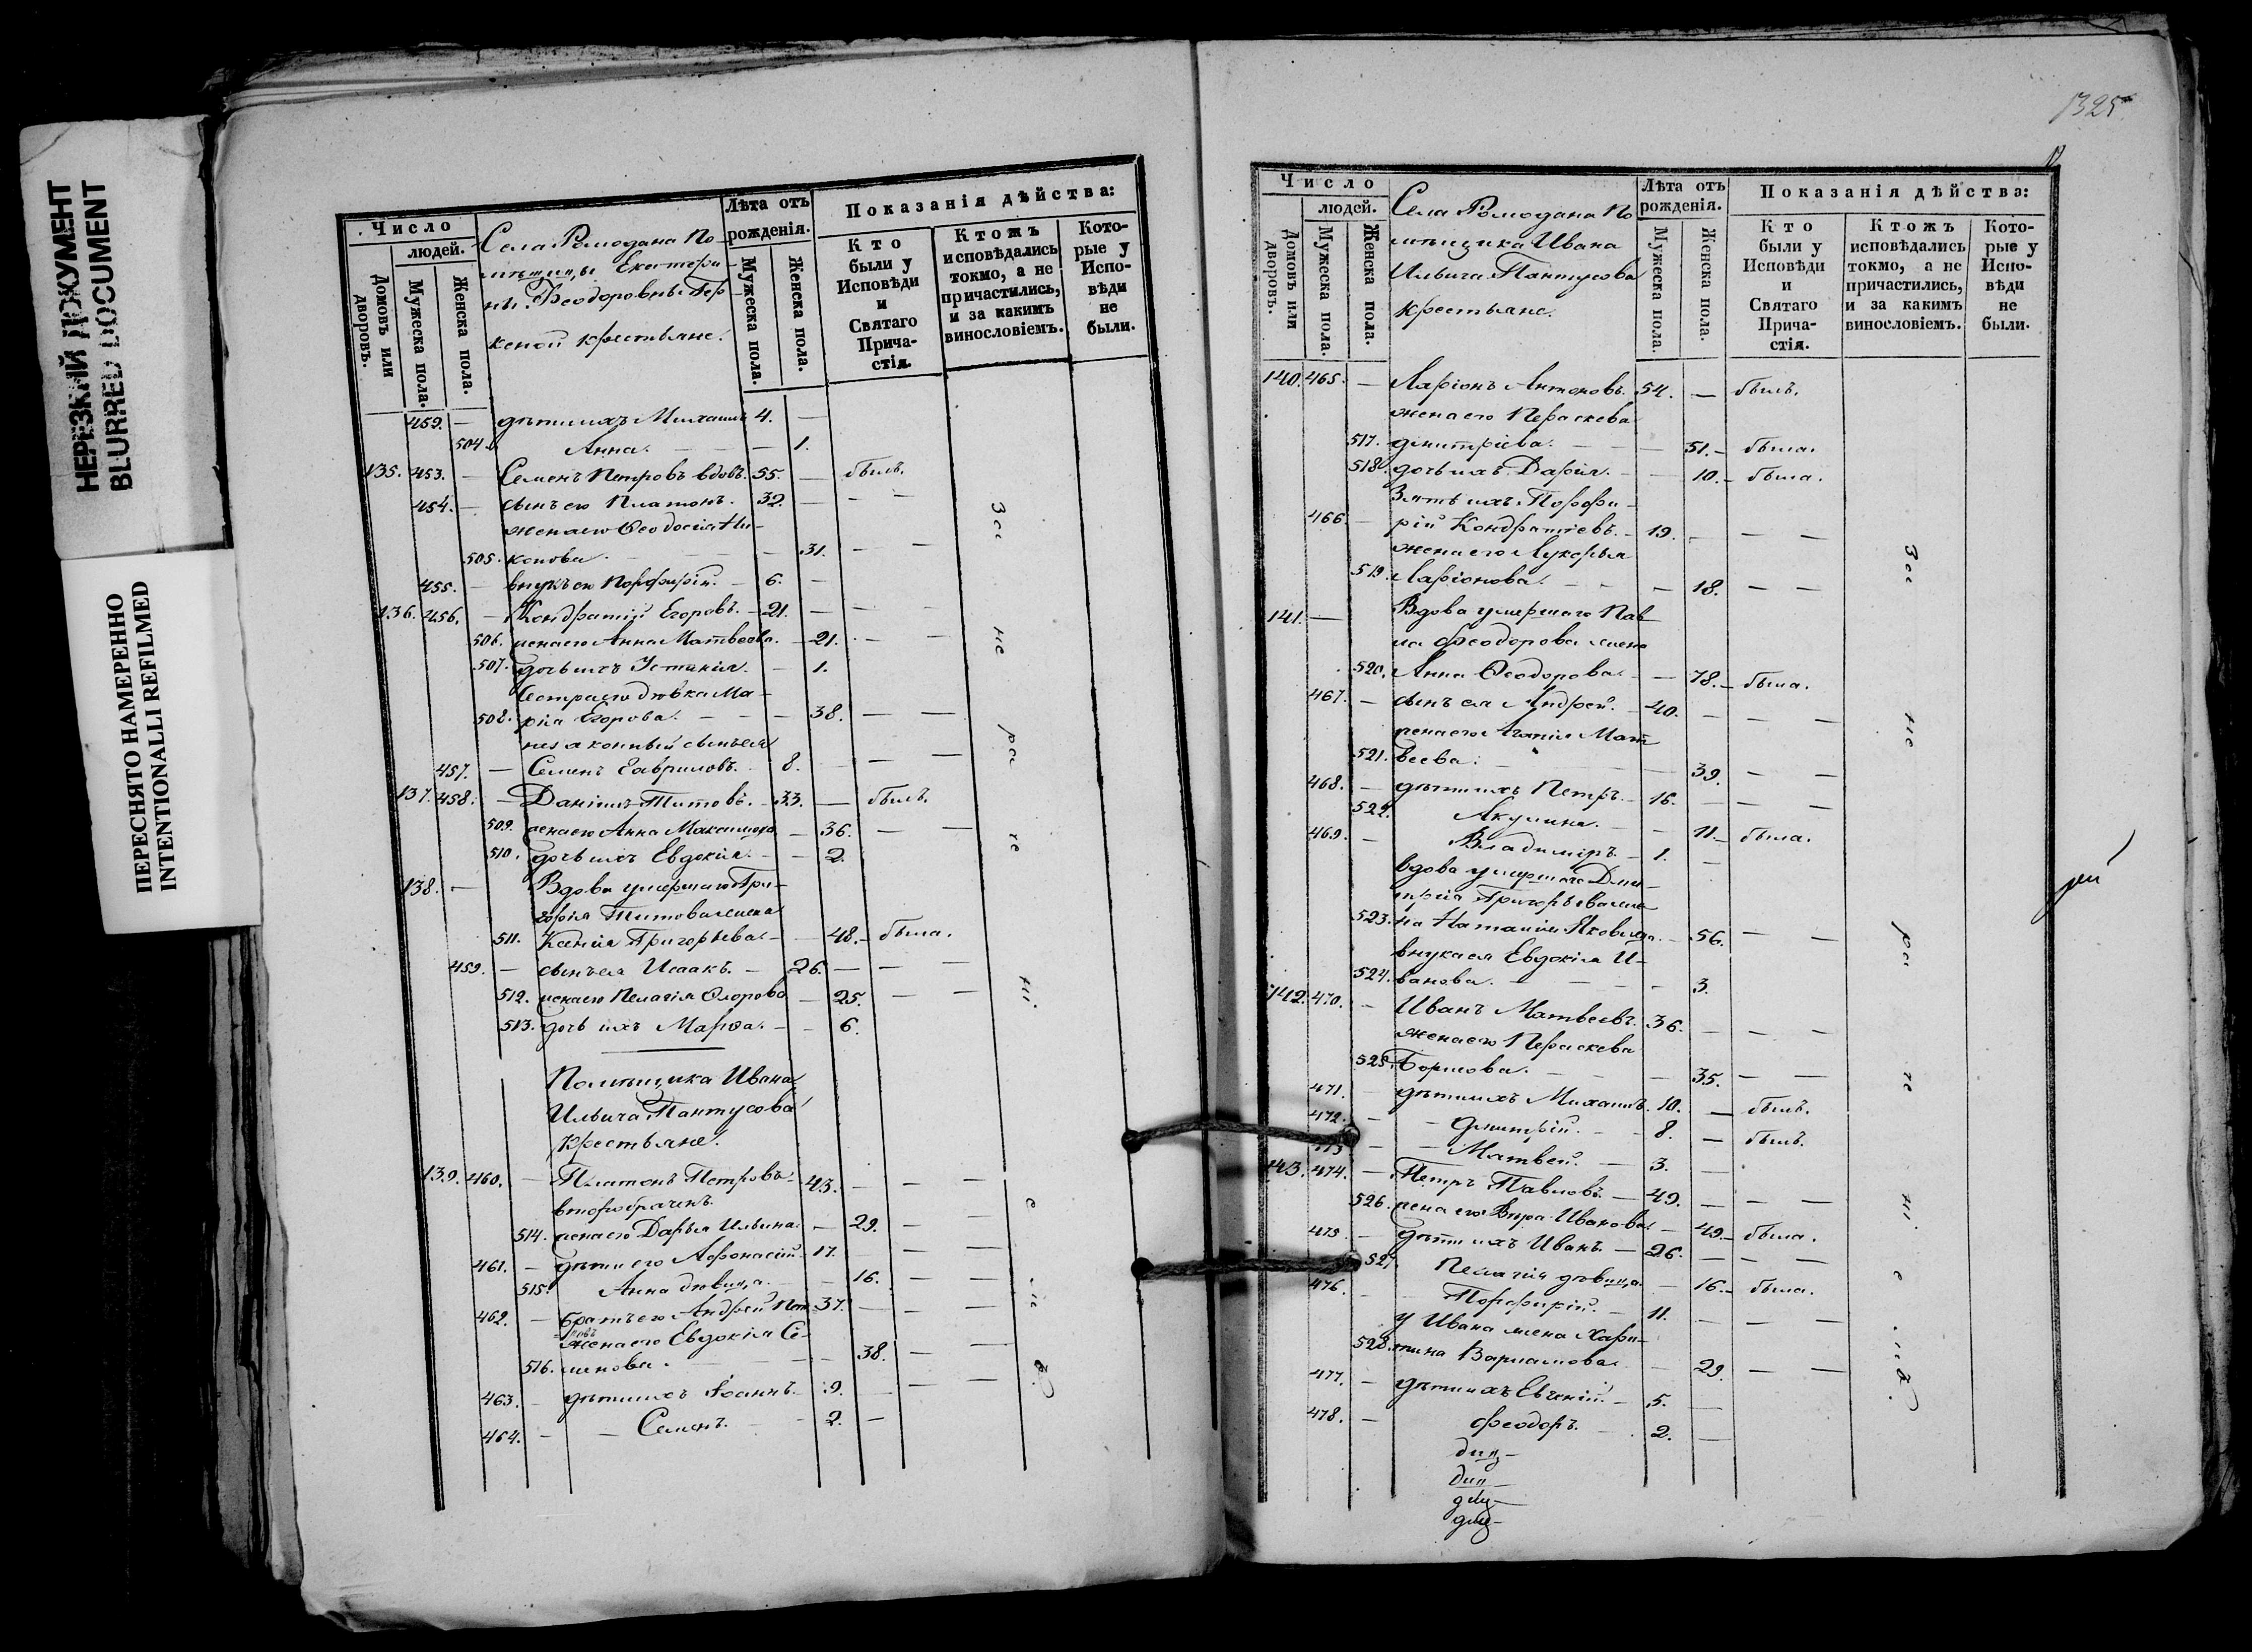 НЕРЕЗКИЙ ДОКУМЕНТ
BLURRED DOCUMENT
ПЕРЕСНЯТО НАМЕРЕННО
INTENTIONALLI REFILMED
Число
людей.
Домовъ или дворовъ.
Мужеска пола.
Женска пола.
Села Ромодана По-
мѣщицы Екатери-
ны Ѳеодоровны
крестьяне.
Лѣта отъ рожденія.
Мужеска пола.
Женска пола.
Показанія дѣйства:
Кто были у Исповѣди и Святаго Прича- стія.
Ктожъ исповѣдались токмо, а не причастились, и за какимъ винословіемъ.
Кото- рые у Испо- вѣди не были.
459. — дѣти ихъ Михаилъ 4. —
504. Анна. — — 1.
135. 453. — Семенъ Петровъ вдовъ. 55. — былъ.
454. — сынъ его Платонъ. 32. — — —
жена его Ѳеодосія Ни-
505. конова. — — 31. — —
455. — внукъ его Порфирій. — 6. —
136. 456. — Кондратій Егоровъ. — 21. — — —
506. жена его Анна Матвеева. — 21. — —
507. дочь ихъ — 1.
Сестра его дѣвка Ма-
508. рія Егорова. — — — 38. — —
незаконный сынъ ея
457. — Семенъ Гавриловъ. 8. — — —
137. 458. — Даніилъ Титовъ. — 33. — былъ.
509. жена его Анна Максимова — 36. — —
510. дочь ихъ Евдокія. — — 2.
138. — Вдова умершаго Гри-
горія Титова жена
511. Ксенія Григорьева. — — 48. — была.
459. — сынъ ея Исаакъ. — 26. — — —
512. жена его Пелагія Ѳлорова — 25. — —
513. дочь ихъ Марѳа. — — 6.
Помѣщика Ивана
Ильича Пантусова
крестьяне.
139. 460. — Платонъ Петровъ 43. — — —
второбраченъ.
514. жена его Дарья Ильина. — 29. — —
461. — дѣти его Аѳонасій. 17. — — —
515. Анна дѣвица. — — 16. — —
462. — братъ его Андрей Пет 37. — — —
ровъ
жена его Евдокія Се-
516. менова. — — — 38. — —
463. — дѣти ихъ Іоаннъ. — 9. — — —
464. — — Семенъ. — — 2. —
За не ра че ні е мъ
1325
Число
людей.
Домовъ или дворовъ.
Мужеска пола.
Женска пола.
Села Ромодана По
мѣщика Ивана
Ильича Пантусова
крестьяне.
Лѣта отъ рожденія.
Мужеска пола.
Женска пола.
Показанія дѣйства:
Кто были у Исповѣди и Святаго Прича- стія.
Ктожъ исповѣдались токмо, а не причастились, и за какимъ винословіемъ.
Кото- рые у Испо- вѣди не были.
140. 465. — Ларіонъ Антоновъ. 54. — былъ.
жена его Параскева
517. Димитріева. — — 51. — была.
518. дочь ихъ Дарія. — — 10. — была.
Зять ихъ Порфи-
466. — рій Кондратіевъ. — 19. — — —
жена его Лукерья
519. Ларіонова. — — — 18. — —
141. — Вдова умершаго Пав
ла Ѳеодорова жена
520. Анна Ѳеодорова. — — 78. — была.
467. — сынъ ея Андрей. — 40. — — —
жена его Агапія Мат
521. веева. — — — 39. — —
468. — дѣти ихъ Петръ. — 16. — — —
522. Акулина. — — 11. — была.
469. — Владиміръ. — 1. —
вдова умершаго Дми-
трія Григорьева же-
523. на Наталія Яковлева. — 56. — —
внука ея Евдокія И-
524. ванова. — — — 3.
142. 470. — Иванъ Матвеевъ. 36. — — —
жена его Параскева
525. Борисова. — — — 35. — —
471. — дѣти ихъ Михаилъ. 10. — былъ.
472. — — Димитрій. — — 8. — былъ.
473 — — Матвей. — 3. —
143. 474. — Петръ Павловъ. — 49. — — —
526. жена его Вѣра Иванова. — 49. — была.
475 — дѣти ихъ Иванъ. — 26. — — —
527. Пелагія дѣвица. — 16. — была.
476. — — Порфирій. — 11. — — —
У Ивана жена Хари-
528. тина Варламова. — 29. — —
477. — дѣти ихъ Евгеній. — 5. —
478. — Ѳеодоръ. — 2. —
За не ра че ні е мъ